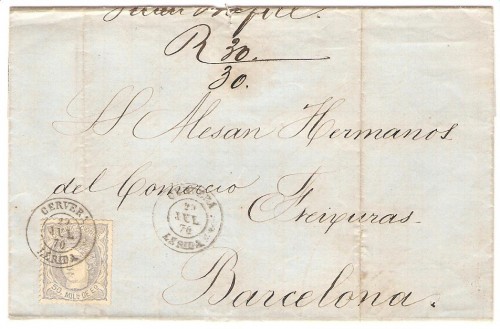 R 30
30.
S.S. Mesan Hermanos
del Comercio
Freixuras.
Barcelona.
CERVERA
JUL
70
LERIDA
CERVERA
JUL
70
LERIDA
50 MILS DE E.